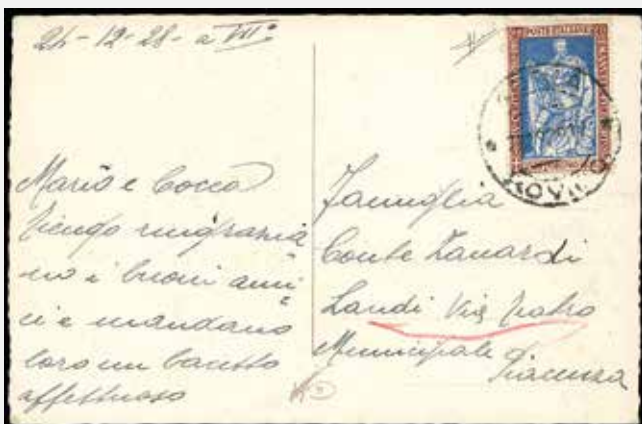 24-12-28- a VII°
Maria e Cocco
ringrazia
no i buoni ami
ci e mandano
loro un bacetto
affettuoso
POSTE ITALIANE
Famiglia
Conte Zanardi
Landi Via Teatro
Municipale
Piacenza